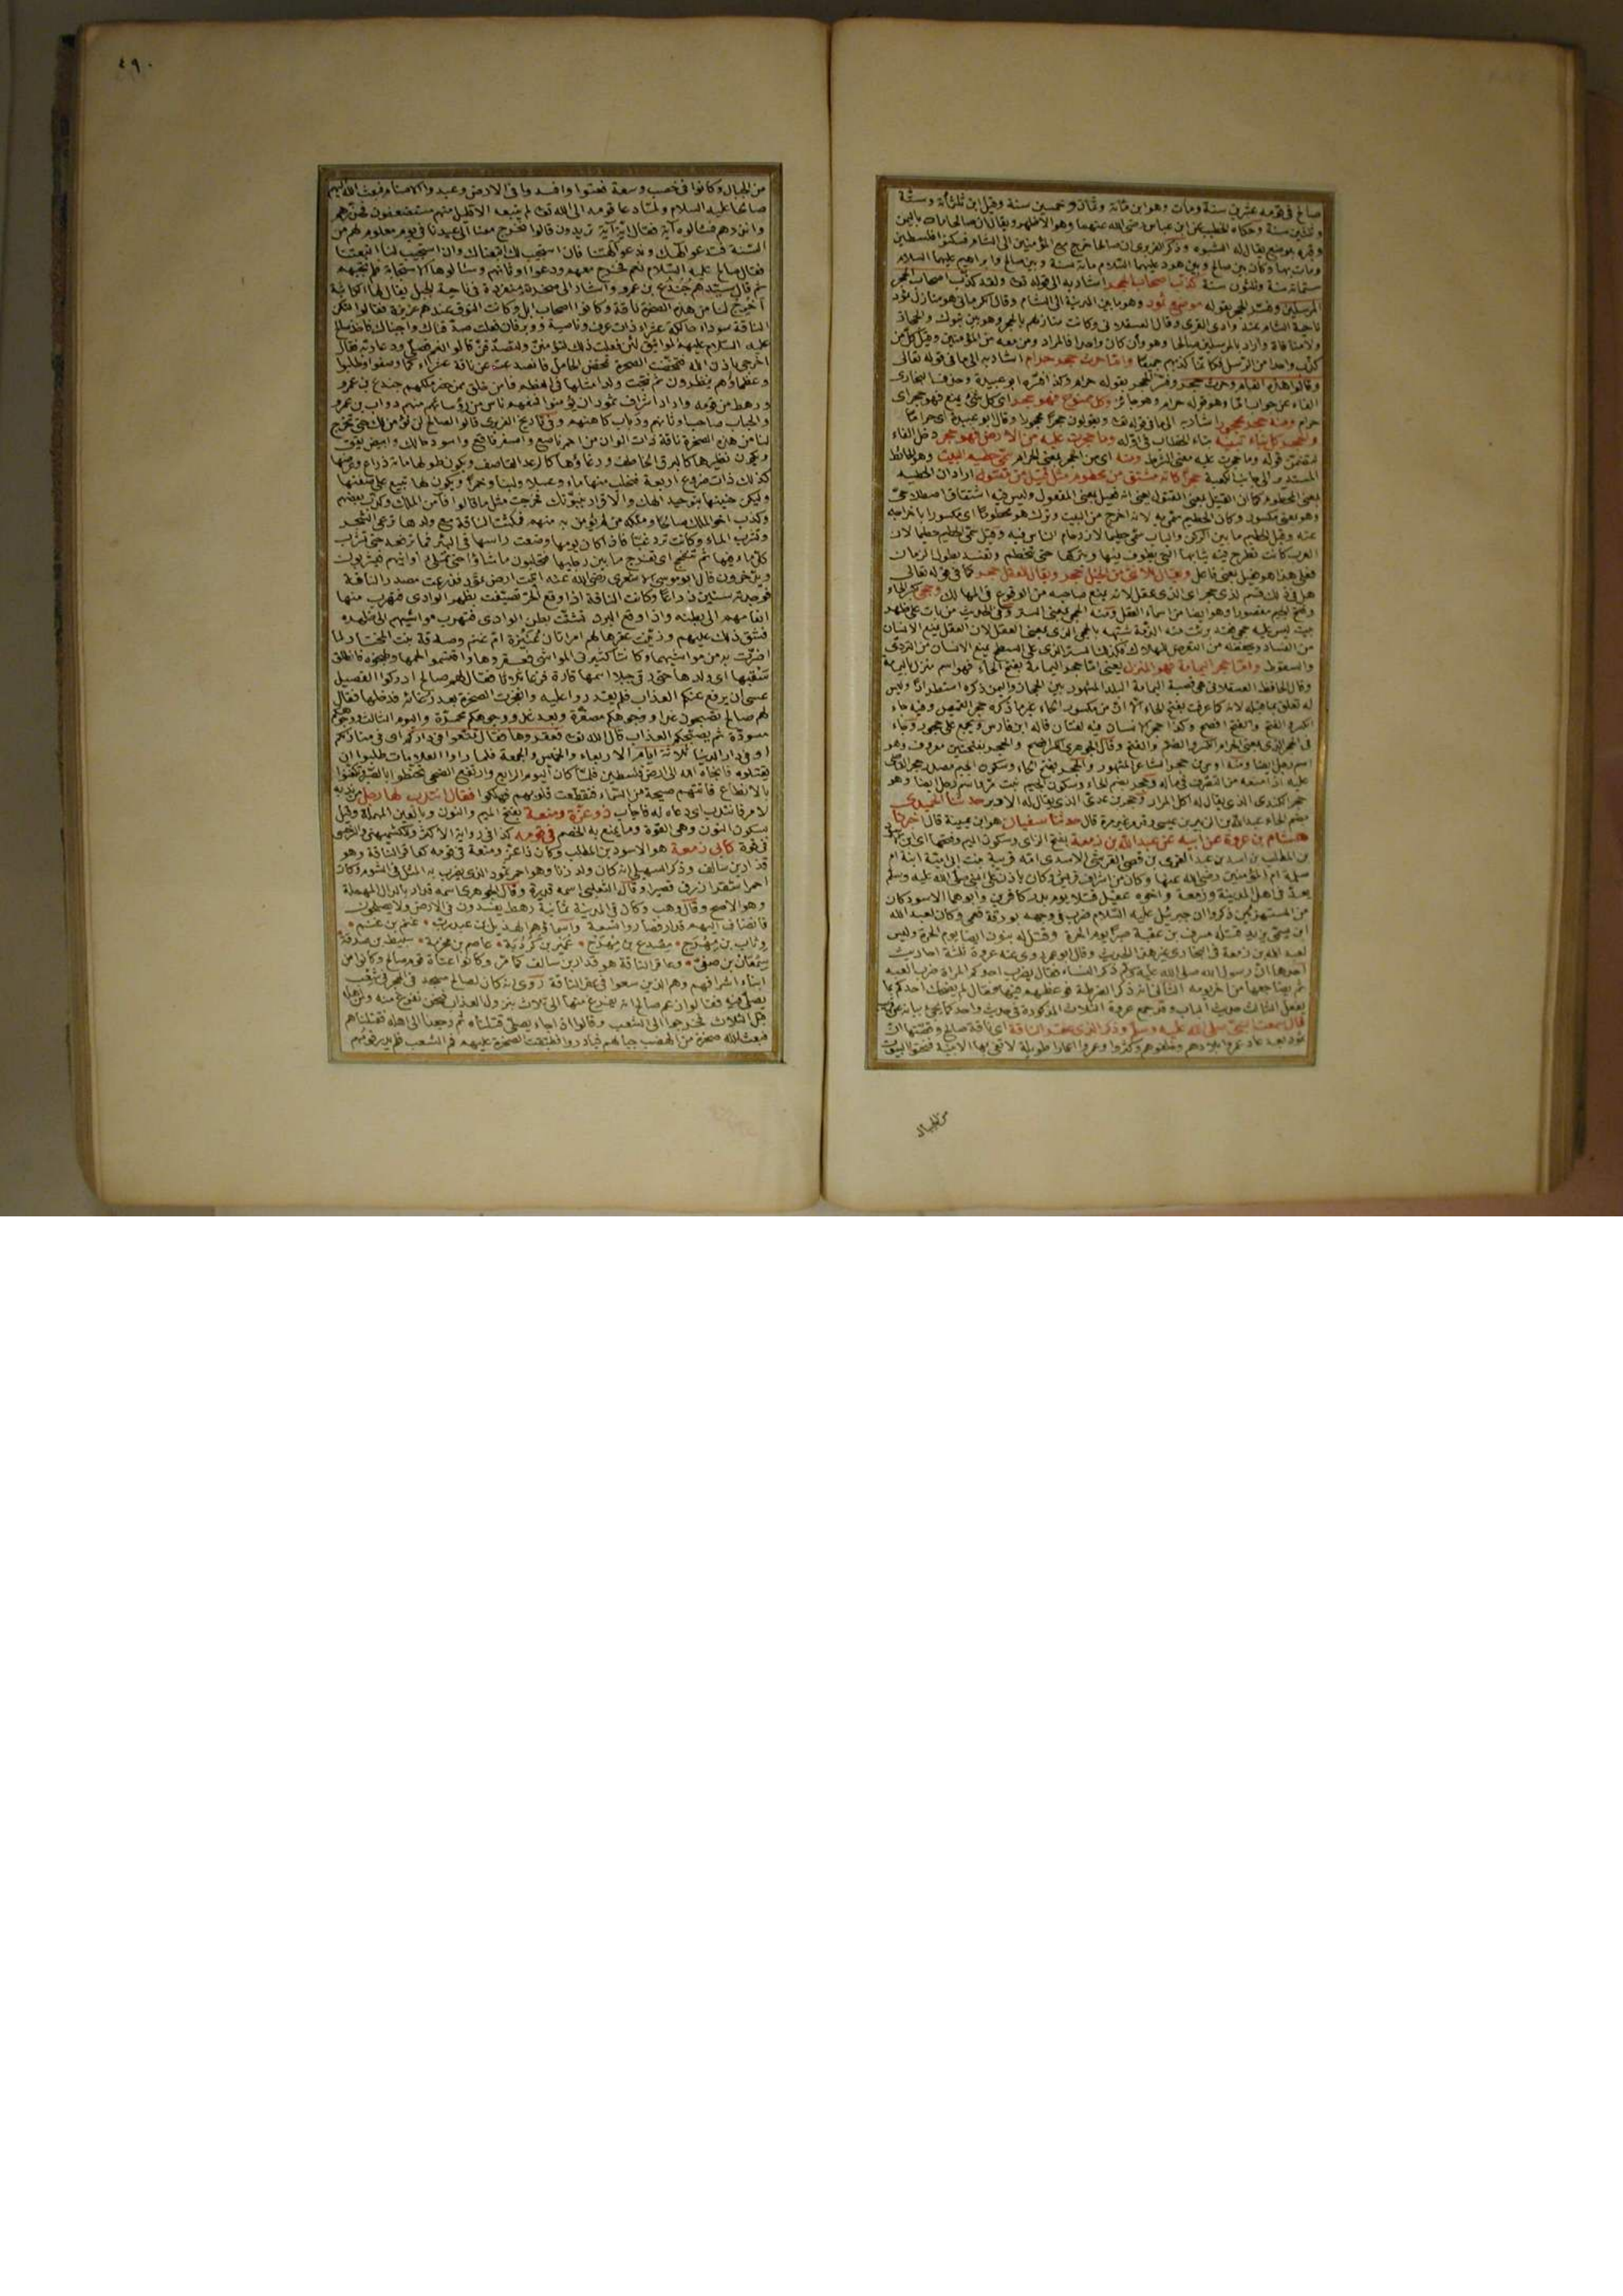 صالح في قومه عشرين سنة ومات وهو ابن مائة وثمان وخمسين سنة وقيل ابن ثلثمأة وستة
وثلثين سنة وحكاه الخطيب عن ابن عباس رضي الله عنهما وهو الاظهر ويقال ان صالحا مات باليمن
وقبره بموضع يقال له الشبوه وذكر العزيزي ان صالحا خرج مع المؤمنين الى الشام فسكنوا فلسطين
ومات بها وكان بين صالح وبين هود عليهما السلام مائة سنة وبين صالح وابراهيم عليهما السلام
ستمائة سنة وثلثون سنة كذب اصحاب الحجر اشار به الى قوله تعالى ولقد كذب اصحاب الحجر
المرسلين وفسر الحجر بقوله موضع ثمود وهو ما بين المدينة الى الشام
ناحية الشام عند وادى القرى وقال العسقلاني وكانت منازلهم بالحجر وهو بين تبوك والحجاز
كذب واحدا من الرسل فكانما كذبهم جميعا واما حرث حجر حرام اشار به الى ما في قوله تعالى
وقالوا هذه انعام وحرث حجر وفسر الحجر بقوله حرام وكذا فسره ابو عبيدة وحذف البخارى
الفاء عن جواب اما وهو قوله حرام وهو جائز وكل ممنوع فهو حجر اى كل شئ يمنع فهو حجر اى
حرام ومنه حجر محجور اشار به الى ما في قوله تعالى ويقولون حجرا محجورا وقال ابو عبيدة اى حراما
والحجر كل بناء تبنيه بتاء الخطاب في اوله وما حجرت عليه من الارض فهو حجر دخل الفاء
لتضمن قوله وما حجرت عليه معنى الشرط ومنه اى من الحجر بمعنى الحرام سمى حطيم البيت وهو الحائط
المستدير الى جانب الكعبة حجرا كانه مشتق من محطوم مثل قتيل من مقتول اراد ان الحطيم
بمعنى المحطوم كما ان القتيل بمعنى المقتول يعنى انه فعيل بمعنى المفعول وليس فيه اشتقاق اصطلاحى
وهو بمعنى مكسور وكان الحطيم سمى به لانه اخرج من البيت وترك هو محطوما اى مكسورا باخراجه
عنه وقيل الحطيم ما بين الركن والباب سمى حطيما لازدحام الناس فيه وقيل سمى الحطيم حطيما لان
العرب كانت تطرح فيه ثيابها التى يطوف فيها ويتركها حتى تتحطم وتفسد بطول الزمان
فعلى هذا هو فعيل بمعنى فاعل ويقال للانثى من الخيل حجر ويقال للعقل حجر كما في قوله تعالى
هل في ذلك قسم لذى حجر اى لذى عقل لانه يمنع صاحبه من الوقوع في المهالك وحجى بكسر الحاء
وفتح الجيم مقصورا وهو ايضا من اسماء العقل ومنه الحجى بمعنى الستر وفى الحديث من بات على ظهر
بيت ليس عليه حجى فقد برئت منه الذمة شبهه بالحجى الذى بمعنى العقل لان العقل يمنع الانسان
من الفساد ويحفظه من التعرض للهلاك فكذا الستر الذى على السطح يمنع الانسان من التردى
والسقوط واما حجر اليمامة فهو المنزل يعنى اما حجر اليمامة بفتح الحاء فهو اسم منزل باليمامة
وقال الحافظ العسقلاني هى قصبة اليمامة البلد المشهور بين الحجاز واليمن ذكره استطرادا وليس
حجر الكندى الذى يقال له اكل المرار وحجر بن عدى الذى يقال له الادبر حدثنا الحميدى
بضم الحاء عبدالله بن الزبير بن عيسى وقد مر غير مرة قال حدثنا سفيان هو ابن عيينة قال اخبرنا
هشام بن عروة عن ابيه عن عبد الله بن زمعة بفتح الزاى وسكون الميم وفتحها اى ابن الاسود
بن المطلب بن اسد بن عبد العزى بن قصى القرشى الاسدى امه قريبة بنت ابى امية اخت ام
سلمة ام المؤمنين رضى الله عنها وكان من اشراف قريش وكان ياذن على النبى صلى الله عليه وسلم
يعد في اهل المدينة وزمعة واخوه عقيل قتلا يوم بدر كافرين وابوهما الاسود كان
من المستهزئين ذكروا ان جبرئيل عليه السلام ضرب في وجهه بورقة فعمى وكان لعبد الله
ابن يسمى يزيد قتله مسرف بن عقبة صبرا يوم الحرة وقتل له بنون ايضا يوم الحرة وليس
لعبد الله بن زمعة في البخارى غير هذا الحديث وقال ابو عمر وروى عنه عروة ثلثة احاديث
احدها ان رسول الله صلى الله عليه وسلم ذكر النساء فقال يضرب احدكم المرأة ضرب العبد
ثم يضاجعها من اخر يومه الثانى انه ذكر الضرطة فوعظهم فيها فقال لم يضحك احدكم مما
يفعل الثالث حديث الباب وقد جمع عروة الثلاث المذكورة في حديث واحد كما يجئ بيانه
قال سمعت النبى صلى الله عليه وسلم وذكر الذى عقر الناقة اى ناقة صالح وقصتها ان
ثمود بعد عاد عمروا بلادهم وخلفوهم وكثروا وعمروا اعمارا طويلة لا تفى بها الابنية فنحتوا البيوت
من الجبال
٤٩٠
من الجبال وكانوا في خصب وسعة فعتوا وافسدوا في الارض وعبدوا الاصنام فبعث الله اليهم
صالحا عليه السلام ولما دعا قومه الى الله تعالى لم يتبعه الا قليل منهم مستضعفون فحذرهم
وانذرهم فسالوه آية فقال اية آية تريدون قالوا تخرج معنا الى عيدنا في يوم معلوم لهم من
السنة فتدعو الهك وندعو آلهتنا فان استجيب لك اتبعناك وان استجيب لنا اتبعتنا
فقال صالح عليه السلام نعم فخرج معهم ودعوا اوثانهم وسئالوها الاستجابة فلم تجبهم
ثم قال سيدهم جندع بن عمرو واشار الى صخرة منفردة في ناحية الجبل يقال لها الكاثبة
اخرج لنا من هذه الصخرة ناقة وكانوا اصحاب ابل وكانت النوق عندهم عزيزة فقالوا لتكن
الناقة سوداء حالكة عشراء ذات عرف وناصية ووبر فان فعلت صدقناك واجبناك فاخذ صالح
عليه السلام عليهم المواثيق لئن فعلت ذلك لتؤمنن ولتصدقن قالوا نعم فصلى ودعا ربه فقال
اخرجى باذن الله فتمخضت الصخرة تمخض الحامل فانصدعت عن ناقة عشراء كما وصفوا وطلبوا
وعظماؤهم ينظرون ثم نتجت ولدا مثلها في العظم فامن خلق ممن حضر ملكهم جندع بن عمرو
ورهط من قومه واراد اشراف ثمود ان يؤمنوا فنهاهم ناس من رؤسائهم منهم دواب بن عمرو
والحباب صاحب اوثانهم ورباب كاهنهم وفى تاريخ العزيزى قالوا لصالح لن نؤمن لك حتى تخرج
لنا من هذه الصخرة ناقة ذات الوان من احمر ناصع واصفر فاقع واسود حالك وابيض يقق
ويكون نظرها كالبرق الخاطف ورغاؤها كالرعد القاصف ويكون طولها مائة ذراع وعرضها
كذلك ذات ضروع اربعة فنحلب منها ماء وعسلا ولبنا وخمرا ويكون لها تبيع على صفتها
وليكن حنينها بتوحيد الهك والاقرار بنبوتك فخرجت مثل ما قالوا فآمن الملك وكذب بعضهم
وتشرب الماء وكانت ترد غبا فاذا كان يومها وضعت راسها في البئر فما ترفعه حتى تشرب
كل ماء فيها ثم تتفحج اى تفرج ما بين رجليها فيحلبون ما شاؤا حتى تمتلى اوانيهم فيشربون
ويدخرون قال ابو موسى الاشعرى رضى الله عنه اتيت ارض ثمود فذرعت مصدر الناقة
فوجدته ستين ذراعا وكانت الناقة اذا وقع الحر تصيفت بظهر الوادى فتهرب منها
انعامهم الى بطنه واذا وقع البرد تشتت بطن الوادى فتهرب مواشيهم الى ظهره
فشق ذلك عليهم وزينت عقرها لهم امرأتان عنيزة ام غنم وصدقة بنت المختار لما
اضرت به من مواشيهما وكانتا كثيرتى المواشى فعقروها واقتسموا لحمها وطبخوه فانطلق
سقبها اى ولدها حتى رقى جبلا اسمها قارة فرغا ثلاثا فقال لهم صالح ادركوا الفصيل
عسى ان يرفع عنكم العذاب فلم يقدروا عليه وانفجت الصخرة بعد رغائه فدخلها فقال
لهم صالح تصبحون غدا ووجوهكم مصفرة وبعد غد ووجوهكم محمرة واليوم الثالث ووجوهكم
مسودة ثم يصبحكم العذاب قال الله تعالى فعقروها فقال تمتعوا في داركم اى في منازلكم
او في دار الدنيا ثلاثة ايام الاربعاء والخميس والجمعة فلما راوا العلامات طلبوا ان
يقتلوه فانجاه الله الى ارض فلسطين فلما كان اليوم الرابع وارتفع الضحى تحنطوا بالصبر وتكفنوا
بالانطاع فاتتهم صيحة من السماء فتقطعت قلوبهم فهلكوا فقال انتدب لها رجل
لامر فانتدب اى دعاه له فاجاب ذو عزة ومنعة بفتح الميم والنون وبالعين المهملة وقيل
بسكون النون وهى القوة وما يمنع به الخصم في قومه كذا في رواية الاكثر
في قوة كابى زمعة هو الاسود بن المطلب وكان ذا عز ومنعة في قومه كعاقر الناقة وهو
قدار بن سالف وذكر السهيلى انه كان ولد زنا وهو احمر ثمود الذى يضرب به المثل في الشوم وكان
احمر اشقر ازرق قصيرا وقال الثعلبى اسمه قديرة وقال الجوهرى اسمه قدار بالدال المهملة
وهو الاصح وقال وهب وكان في المدينة ثمانية رهط يفسدون في الارض ولا يصلحون
فانضاف اليهم قدار فصاروا تسعة واسماؤهم الهذيل بن عبد رب • غنم بن غنم •
ورباب بن مهرج • مصدع بن مهرج • عمير بن كردبة • عاصم بن مخرمة • سبيط بن صدقة
سمعان بن صفى • وعاقر الناقة هو قدار بن سالف كما مر وكانوا عتاة قوم صالح وكانوا من
ابناء اشرافهم وهم الذين سعوا في عقر الناقة روى انه كان لصالح مسجد في الحجر في شعب
يصلى فيه فقالوا زعم صالح انه يفرغ منا الى ثلاث بنزول العذاب فنحن نفرغ منه ومن اهله
قبل الثلاث فخرجوا الى الشعب وقالوا اذا جاء يصلى قتلناه ثم رجعنا الى اهله فقتلناهم
فبعث الله صخرة من الهضب حيالهم فبادروا فطبقت الصخرة عليهم فم الشعب فلم يدر قومهم